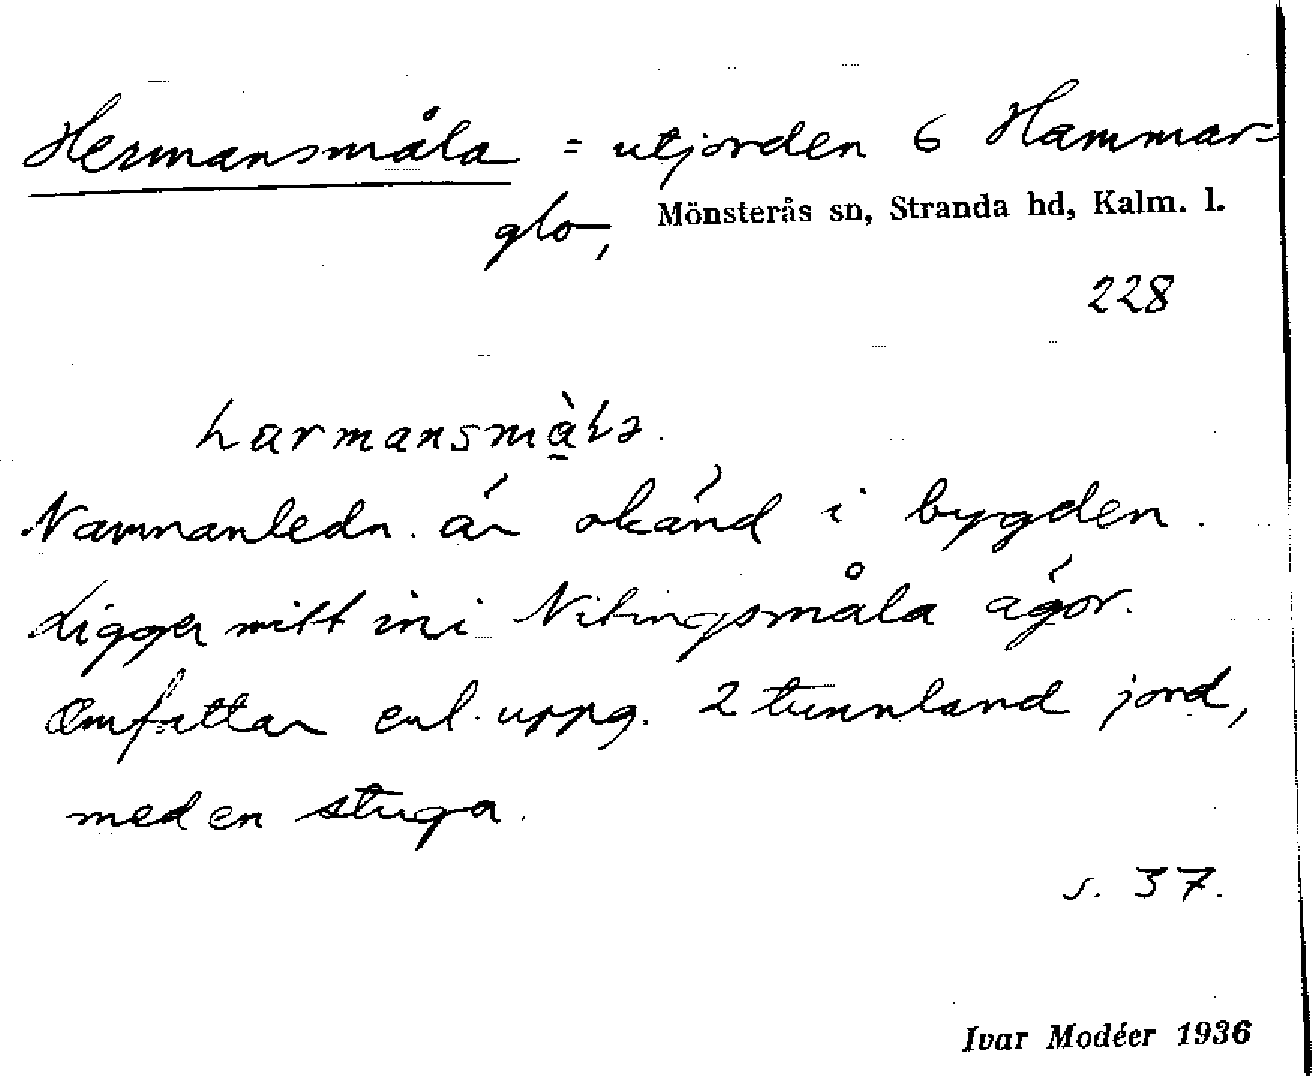 Hermansmåla = utjorden 6 Hammar=
glo,
Mönsterås sn, Stranda hd, Kalm. l.
228
harmansmà̱la.
Namnanledn. är okänd i bygden.
Ligger mitt in i Nilingsmåla ägor.
Omfattar enl. uppg. 2 tunnland jord,
med en stuga.
s. 37.
Ivar Modéer 1936